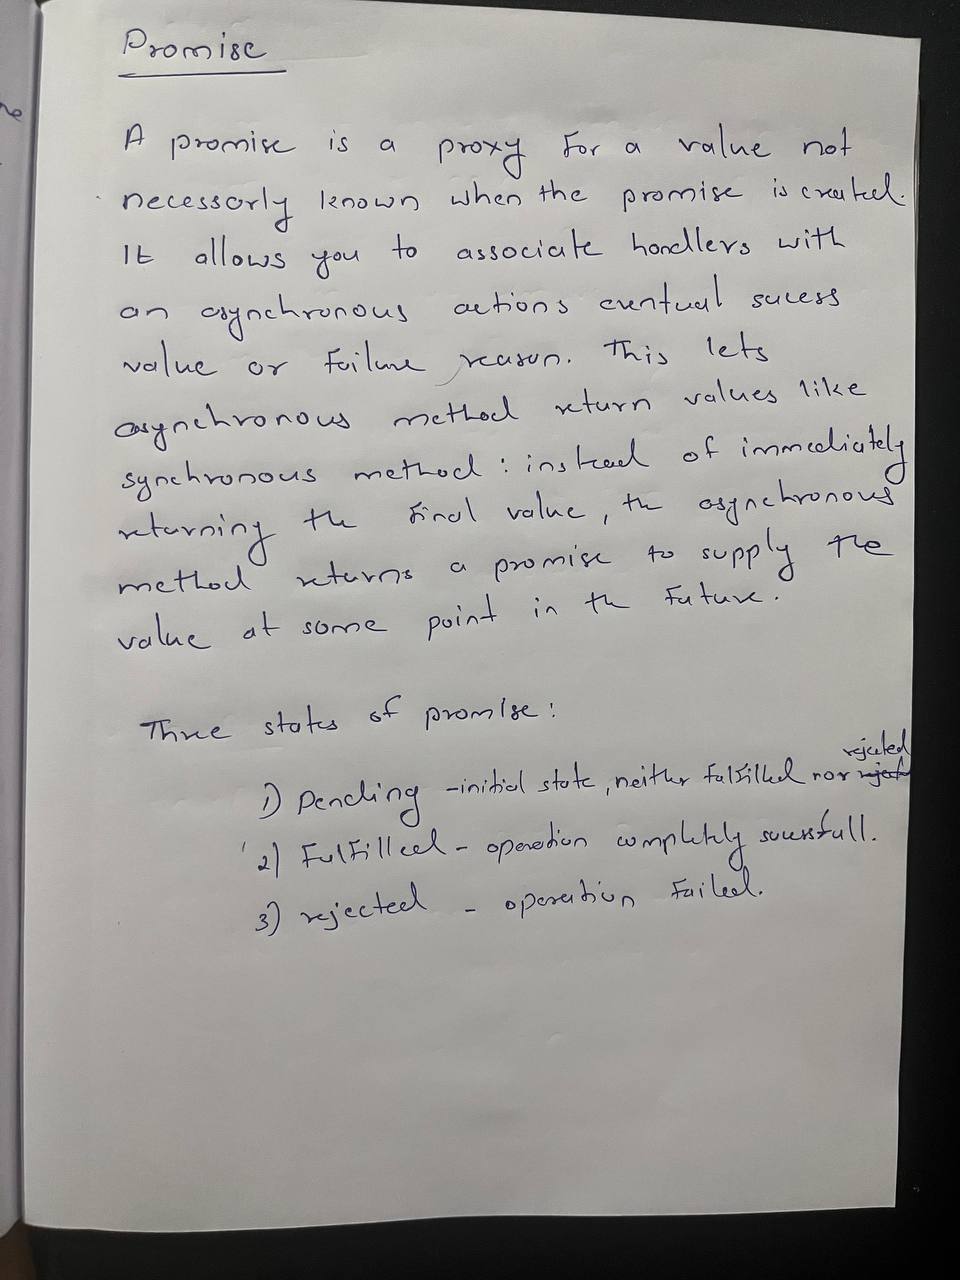 Promise
A promise is a proxy for a value not
necessorly known when the promise is created.
It allows you to associate handlers with
an asynchronous actions eventual sucess
value or failure reason. This lets
asynchronous method return values like
synchronous method : instead of immediately
returning the final value, the asynchronous
method returns a promise to supply the
value at some point in the future.
Three states of promise :
rejected
1) Pending - initial state, neither fulfilled nor
2) Fulfilled - operation completely sucessfull.
3) rejected - operation failed.